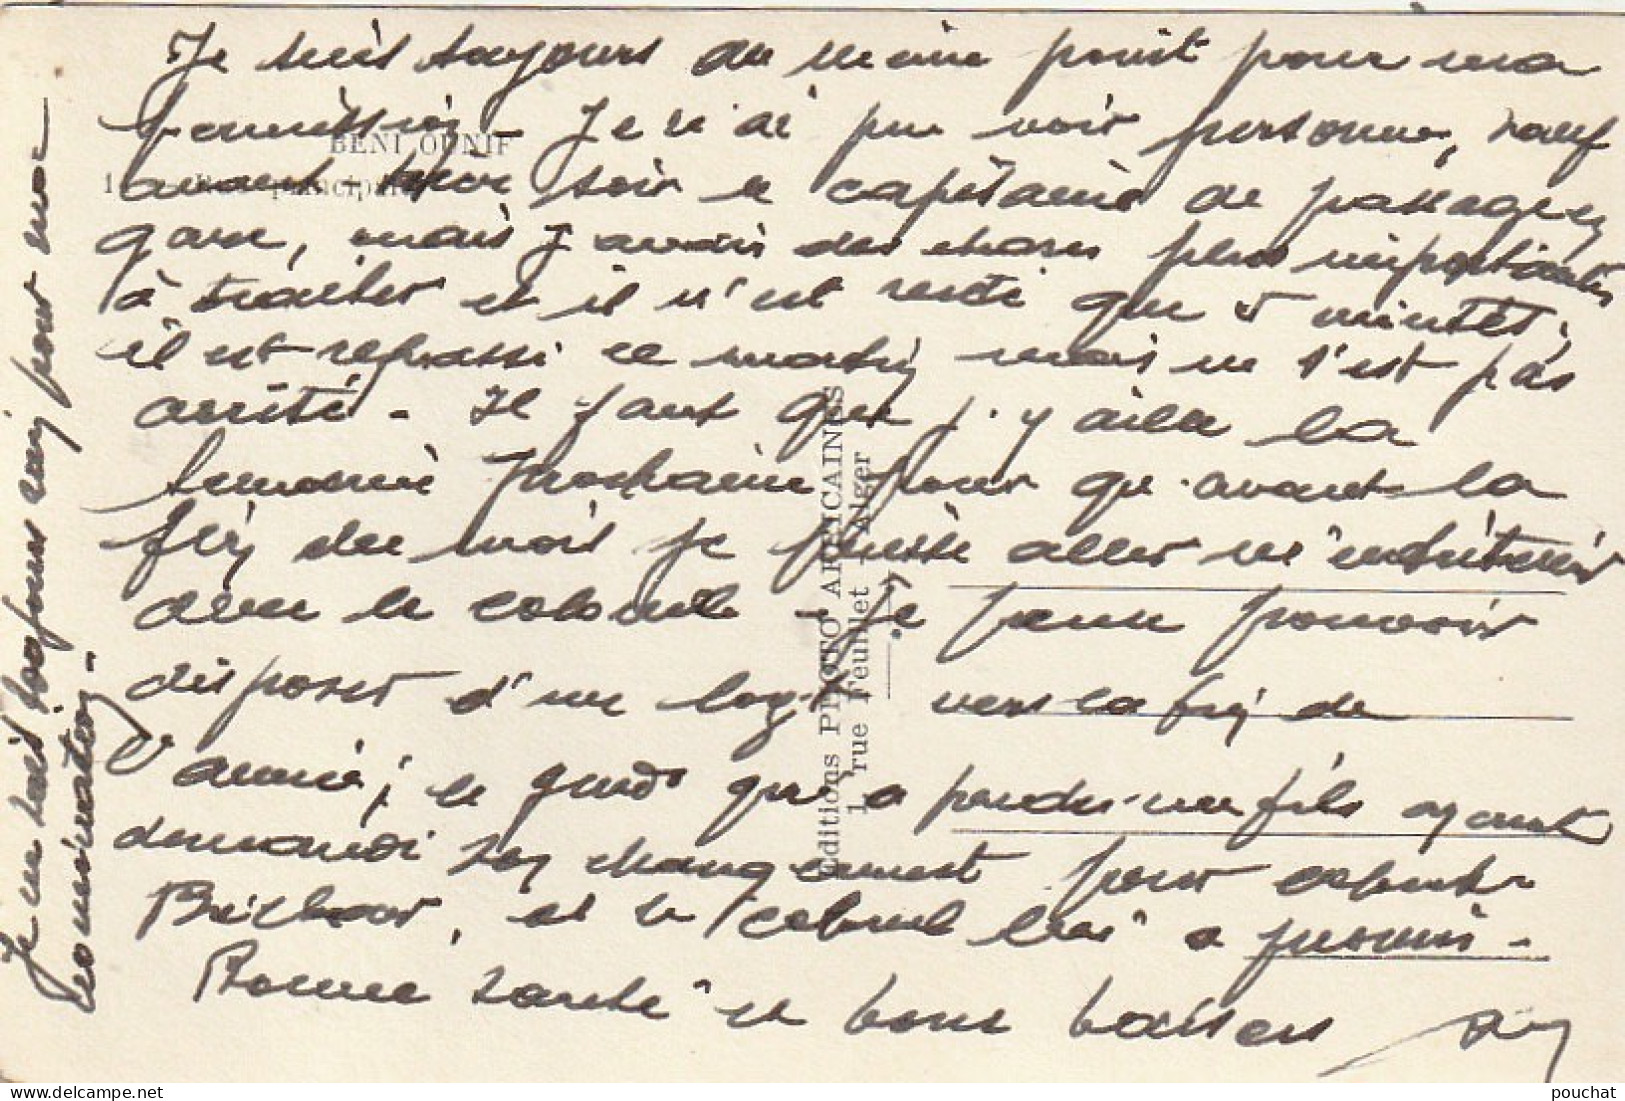 Je suis toujours au même point pour ma
permission - Je n'ai pu voir personne, sauf
avant hier soir le capitaine de passage en
gare, mais j'avais des choses plus importantes
à traiter et il n'est resté que 5 minutes,
il est repassé ce matin mais ne s'est pas
arrêté - Il faut que j'y aille la
semaine prochaine pour qu'avant la
fin du mois je puisse aller m'entretenir
avec le colonel - Je pense pouvoir
disposer d'un logt vers la fin de
l'année, le garde qui a perdu un fils ayant
demandé son changement pour Colomb
Béchar, et le colonel lui a promis -
Bonne santé et bons baisers
Je ne sais toujours rien pour ma
nomination -
BENI OUNIF
1 Rue principale
Editions PHOTO AFRICAINES
1 rue Feuillet - Alger
pouchat